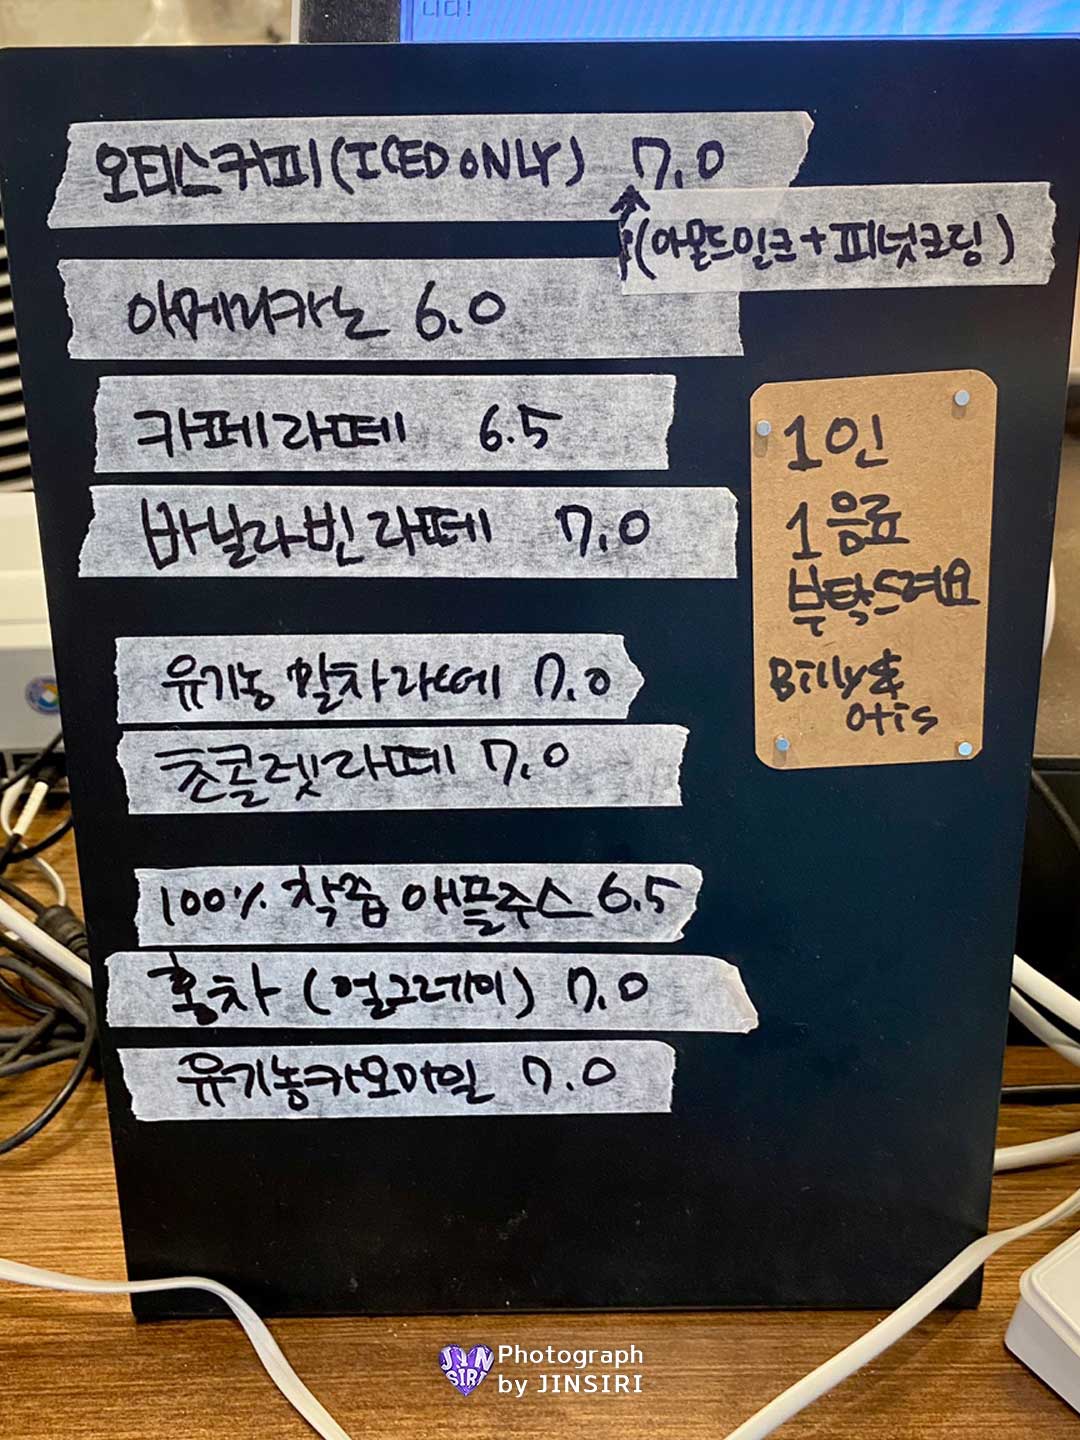 니다!
오티스커피(ICED ONLY) 7.0
(아몬드밀크+피넛크림)
아메리카노 6.0
카페라떼 6.5
바닐라빈라떼 7.0
유기농 말차라떼 7.0
초콜렛라떼 7.0
100% 착즙 애플주스 6.5
홍차 (얼그레이) 7.0
유기농카모마일 7.0
1인
1음료
부탁드려요
Billy&
otis
JIN
SIRI
Photograph
by JINSIRI